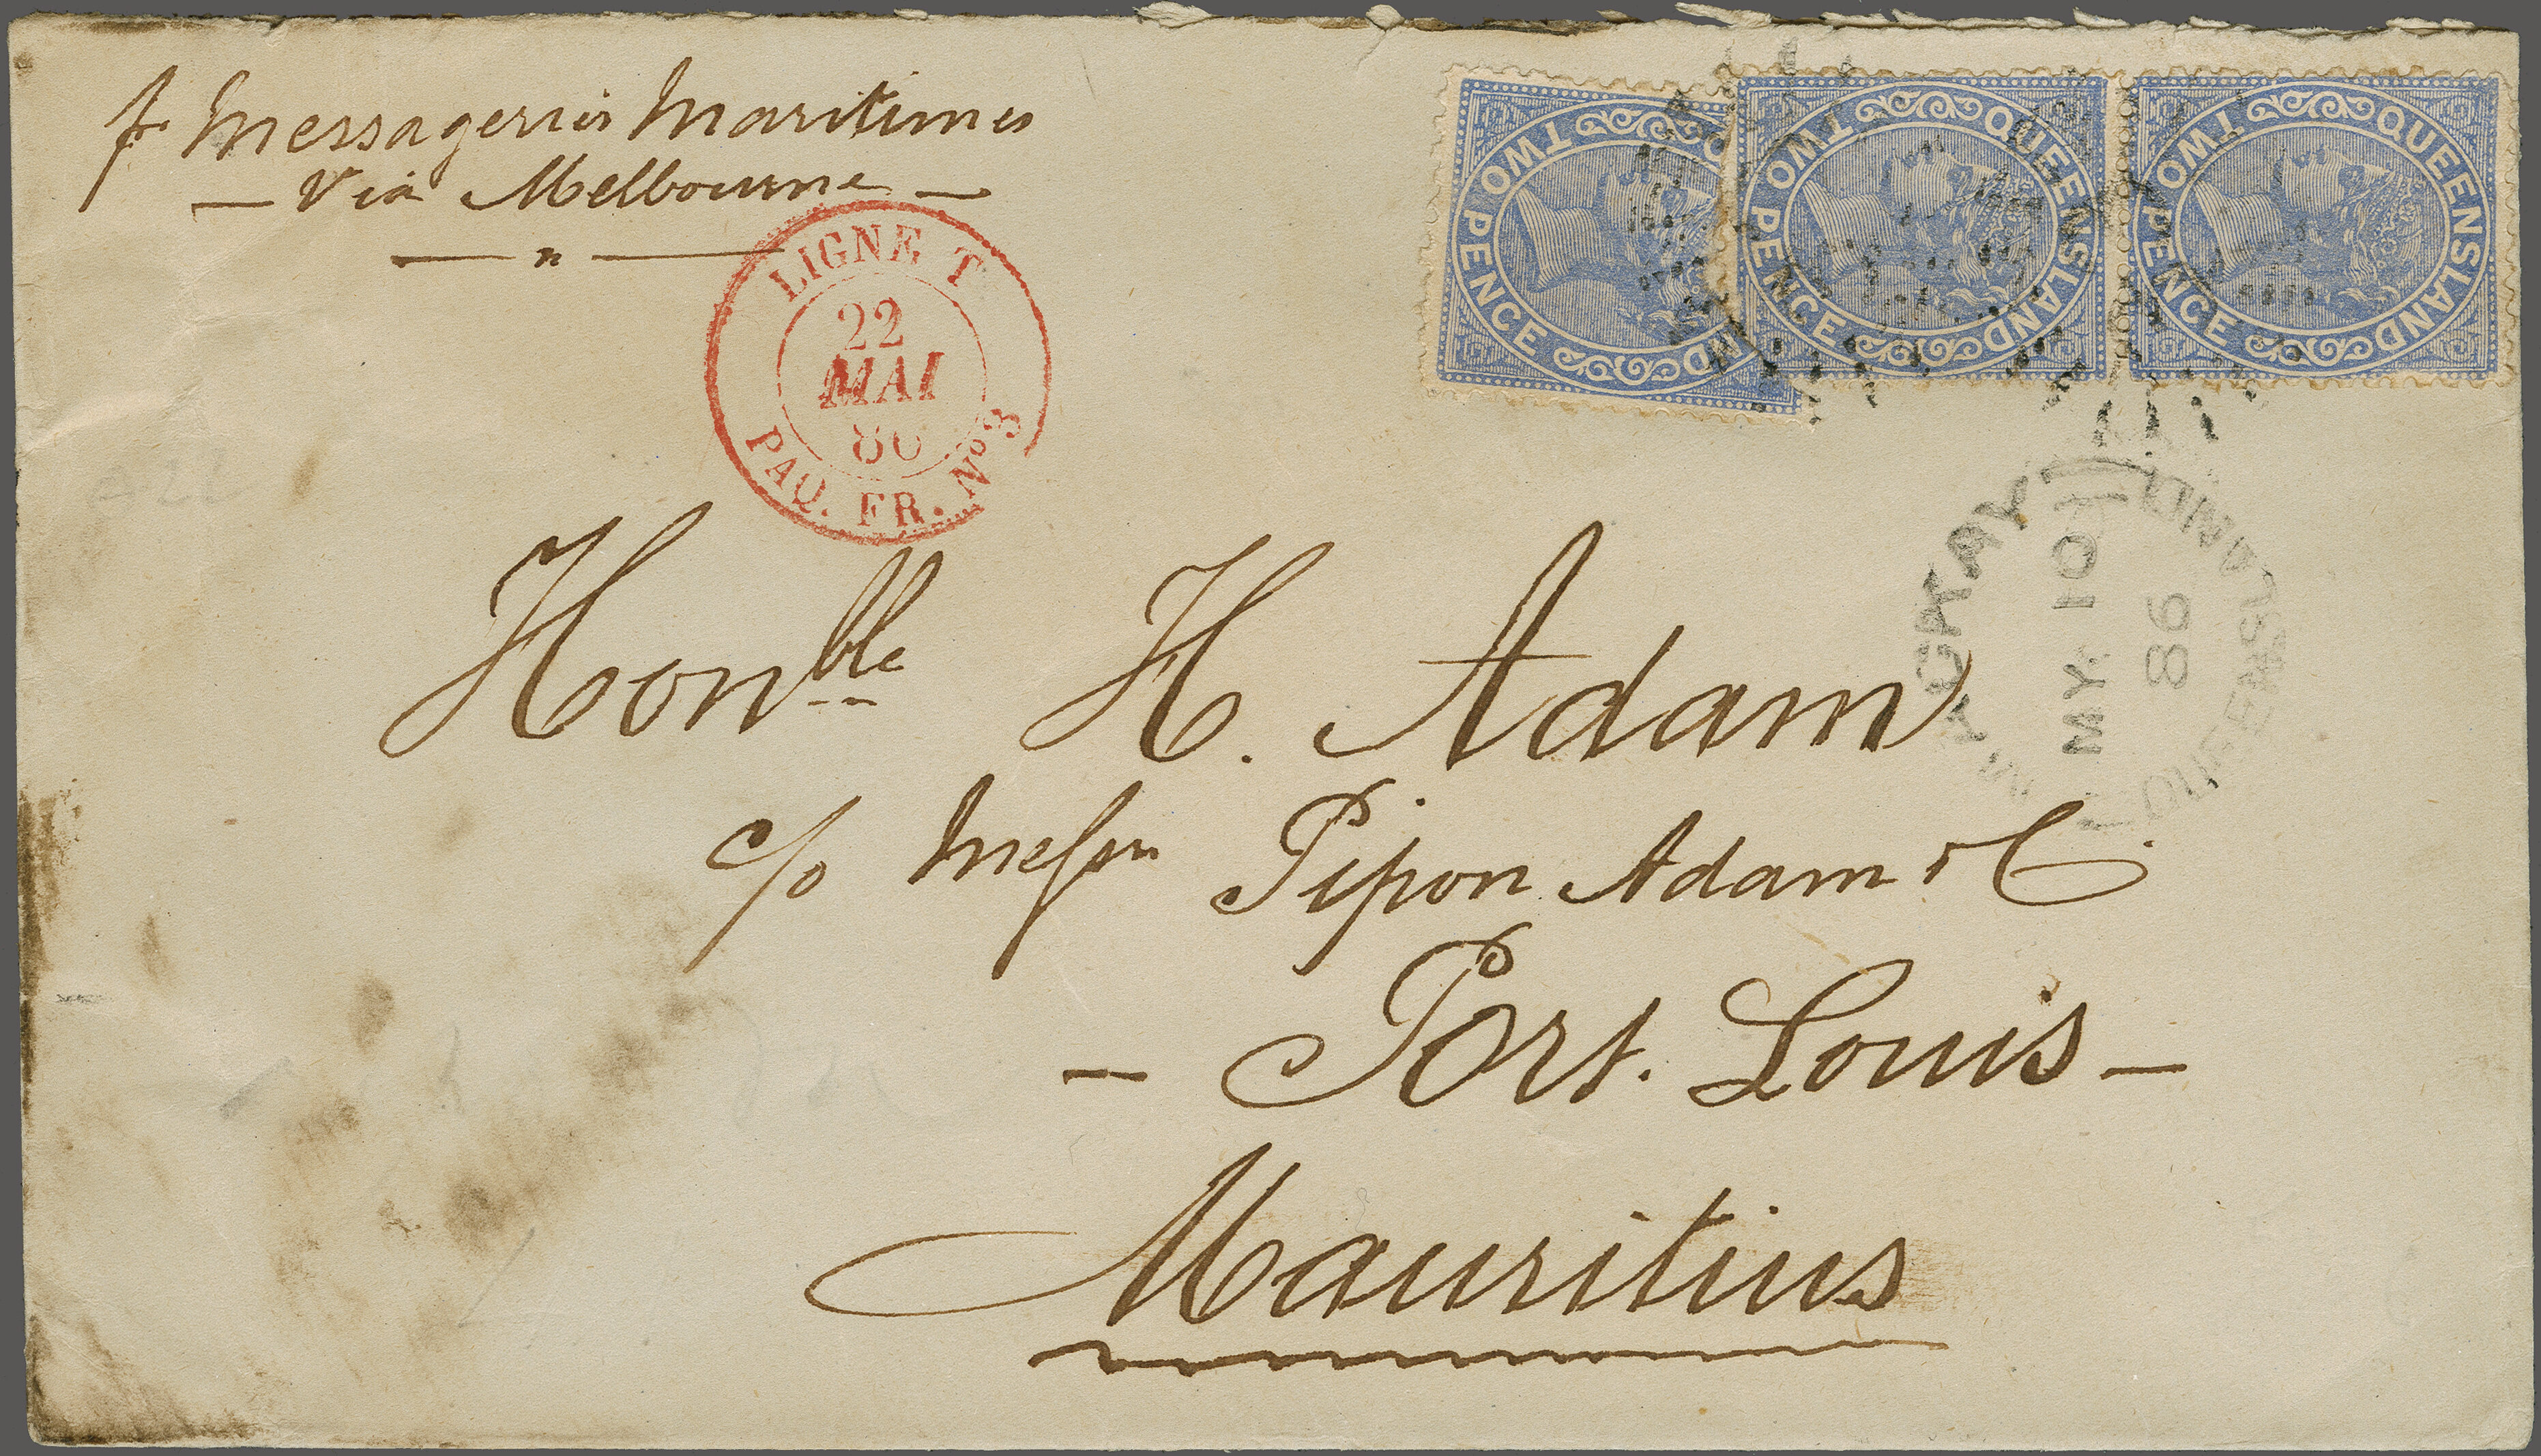 pr Messageries Maritimes
— Via Melbourne —
— " —
LIGNE T
22
MAI
86
PAQ. FR. Nº 3
TWO PENCE
QUEENSLAND TWO PENCE
QUEENSLAND TWO PENCE
MACKAY
MY 10
86
QUEENSLAND
Honble H. Adam
c/o Messrs Pipon Adam & C.
— Port. Louis —
Mauritius